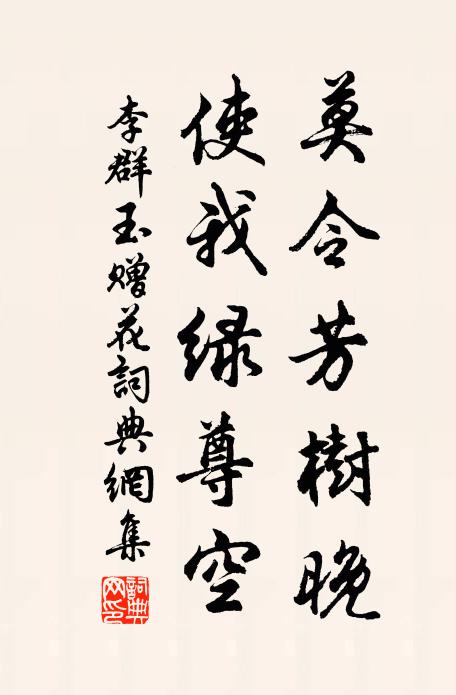 莫令芳樹晚
使我綠尊空
李群玉贈花詞典網集
詞典網印